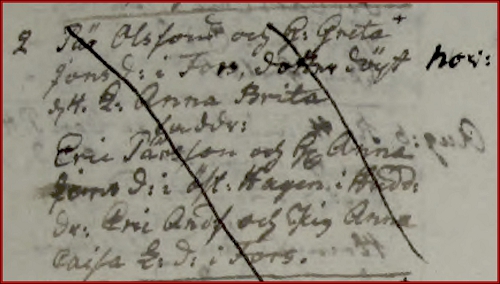 2 Pär Olsons och H: Greta
Jons d: i Fors, dotter döpt nov:
d. 2. Anna Brita
faddr:
Eric Pärsson och H: Anna
Jons d: i öst: Hagen i Hed:
dr: Eric And: och Pig Anna
Caisa E: d: i Fors.